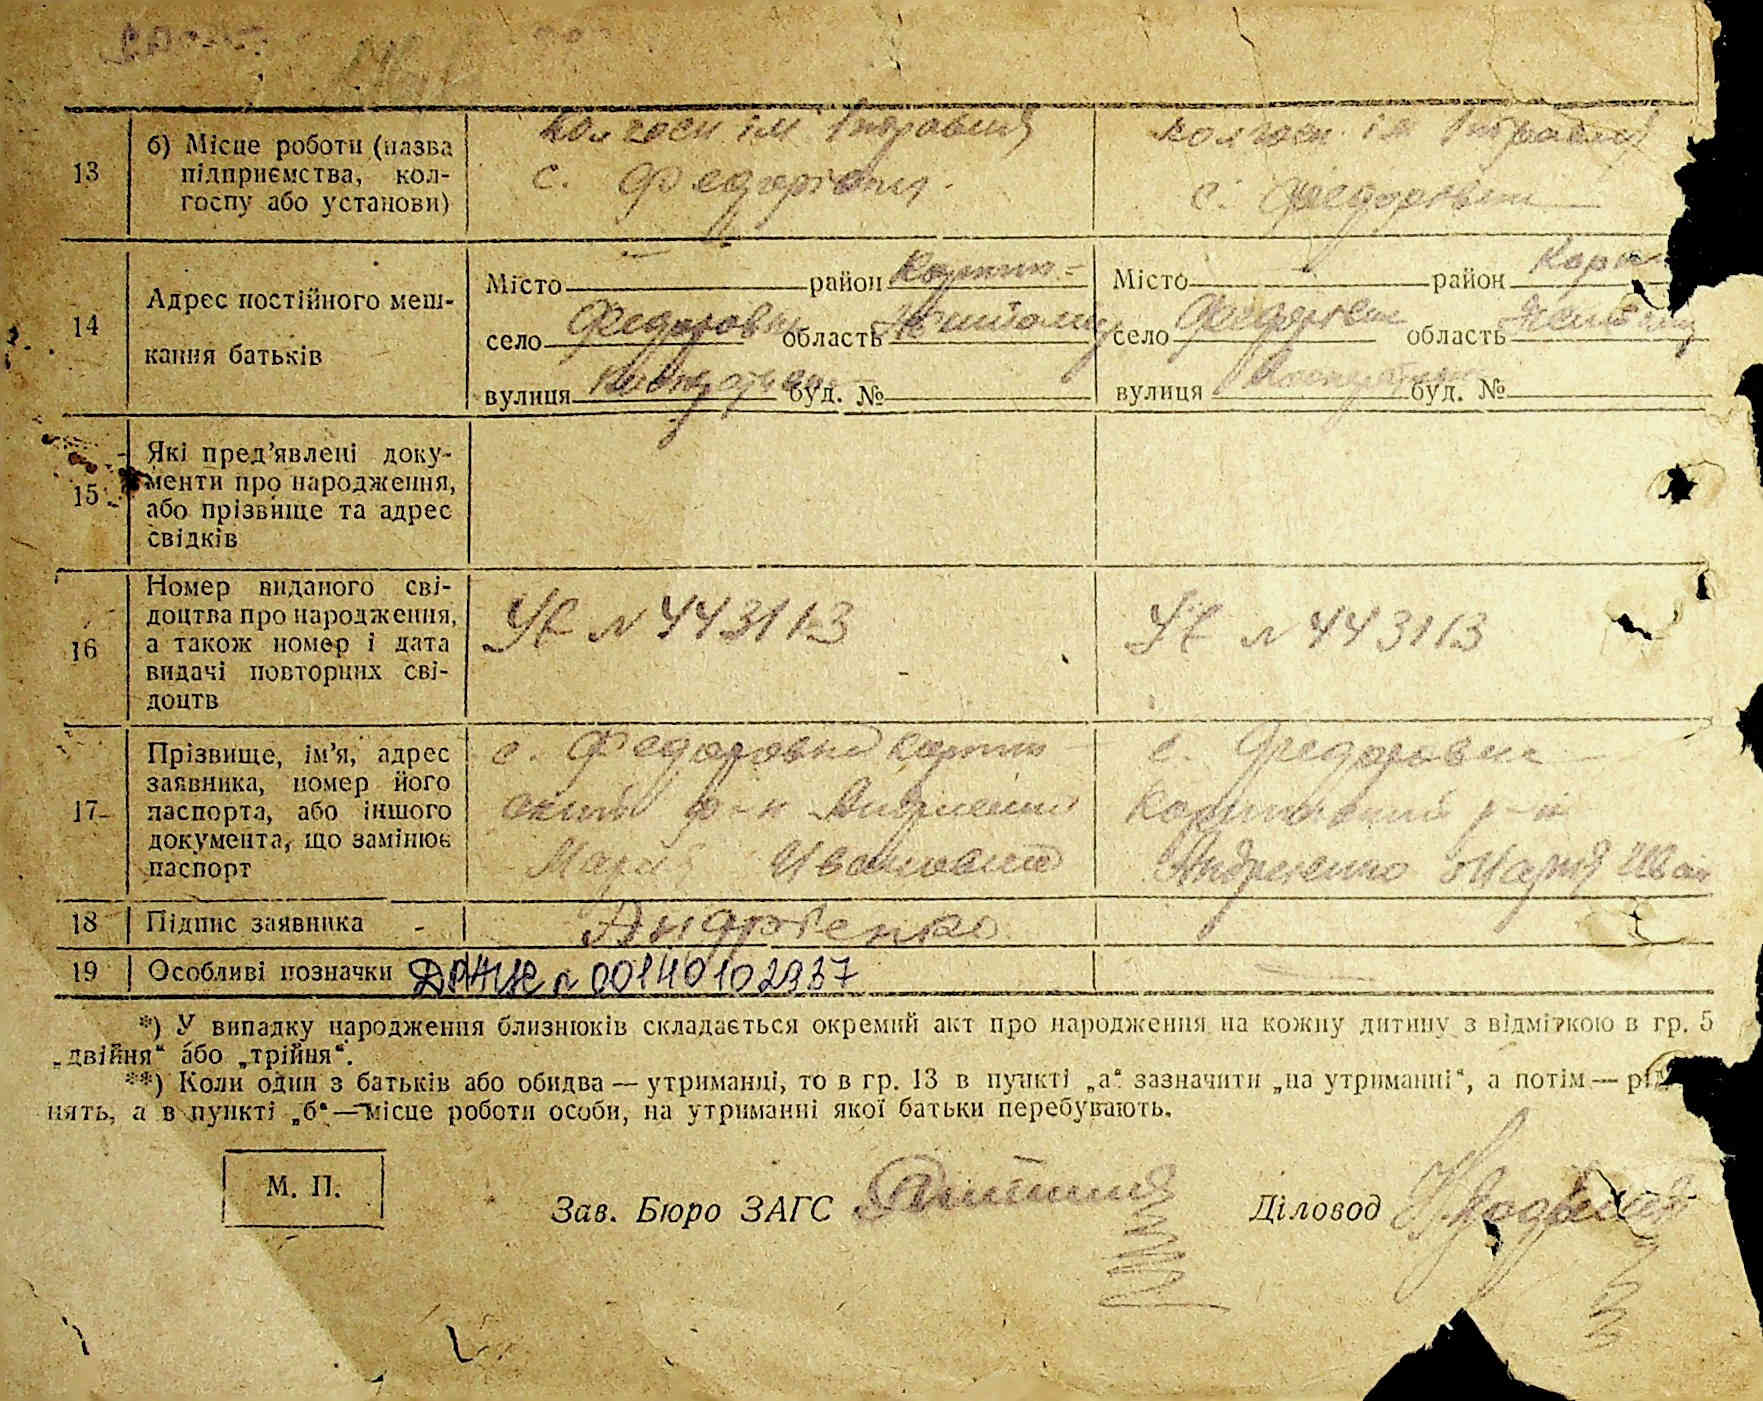 13
б) Місце роботи (назва
підприємства, кол-
госпу або установи)
колгосп ім 1 травня
с. Федорівка.
колгосп ім 1 травня
с. Федоровка
14
Адрес постійного меш-
кання батьків
Місто район Корнин-
село Федоровка область Житомир
вулиця буд. №
Місто район Корн
село Федоровка область Житомир
вулиця буд. №
15
Які пред'явлені доку-
менти про народження,
або прізвище та адрес
свідків
16
Номер виданого сві-
доцтва про народження,
а також номер і дата
видачі повторних сві-
доцтв
№ 443113
№ 443113
17
Прізвище, ім'я, адрес
заявника, номер його
паспорта, або іншого
документа, що замінює
паспорт
с. Федоровка Корнин
ский р-н Андриенко
Мария Ивановна
с. Федоровка
Корнинский р-н
Андриенко Мария Иван
18
Підпис заявника
Андрієнко
19
Особливі позначки
№ 00140102937
*) У випадку народження близнюків складається окремий акт про народження на кожну дитину з відміткою в гр. 5
„двійня“ або „трійня“.
**) Коли один з батьків або обидва — утриманці, то в гр. 13 в пункті „а“ зазначити „на утриманні“, а потім —
нять, а в пункті „б“ — місце роботи особи, на утриманні якої батьки перебувають.
М. П.
Зав. Бюро ЗАГС
Діловод